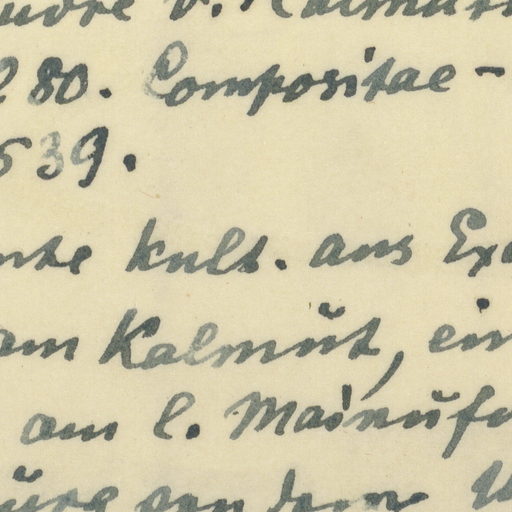 v. Kalmut
280. Compositae -
539.
kult. aus Ex
am Kalmüt, ein
am l. Mainufe